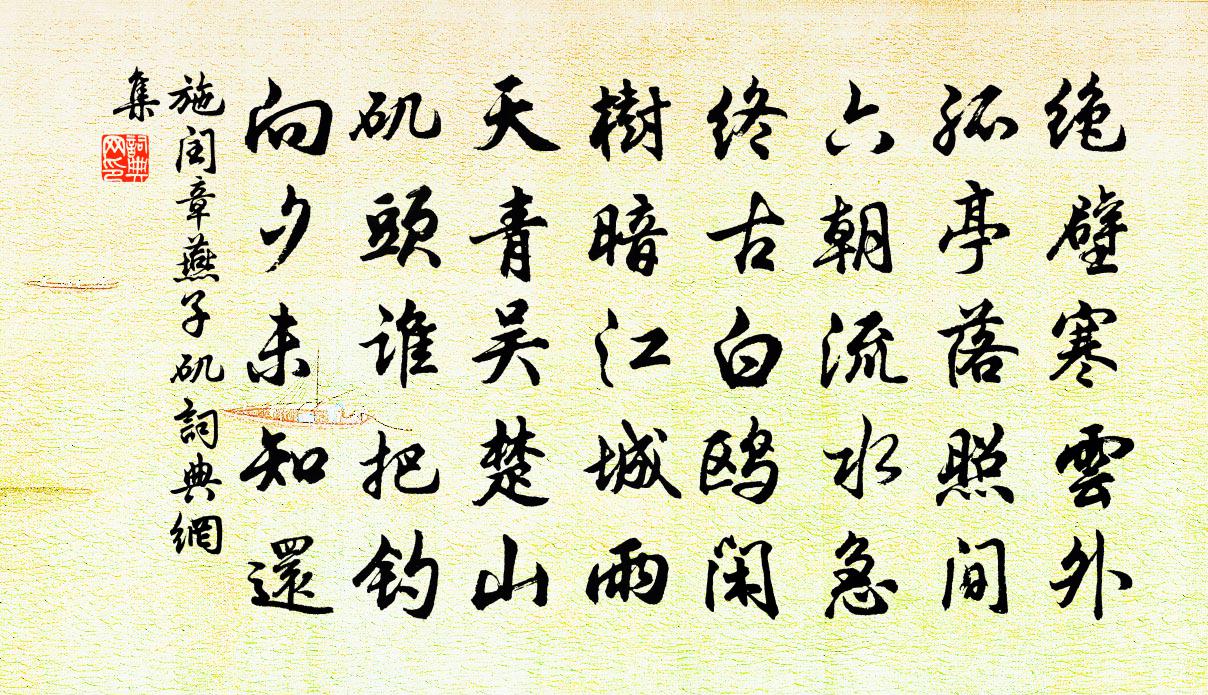 绝壁寒雲外
孤亭落照间
六朝流水急
终古白鸥闲
樹暗江城雨
天青吴楚山
矶頭谁把钓
向夕未知還
施闰章燕子矶詞典網
集
詞典
网印